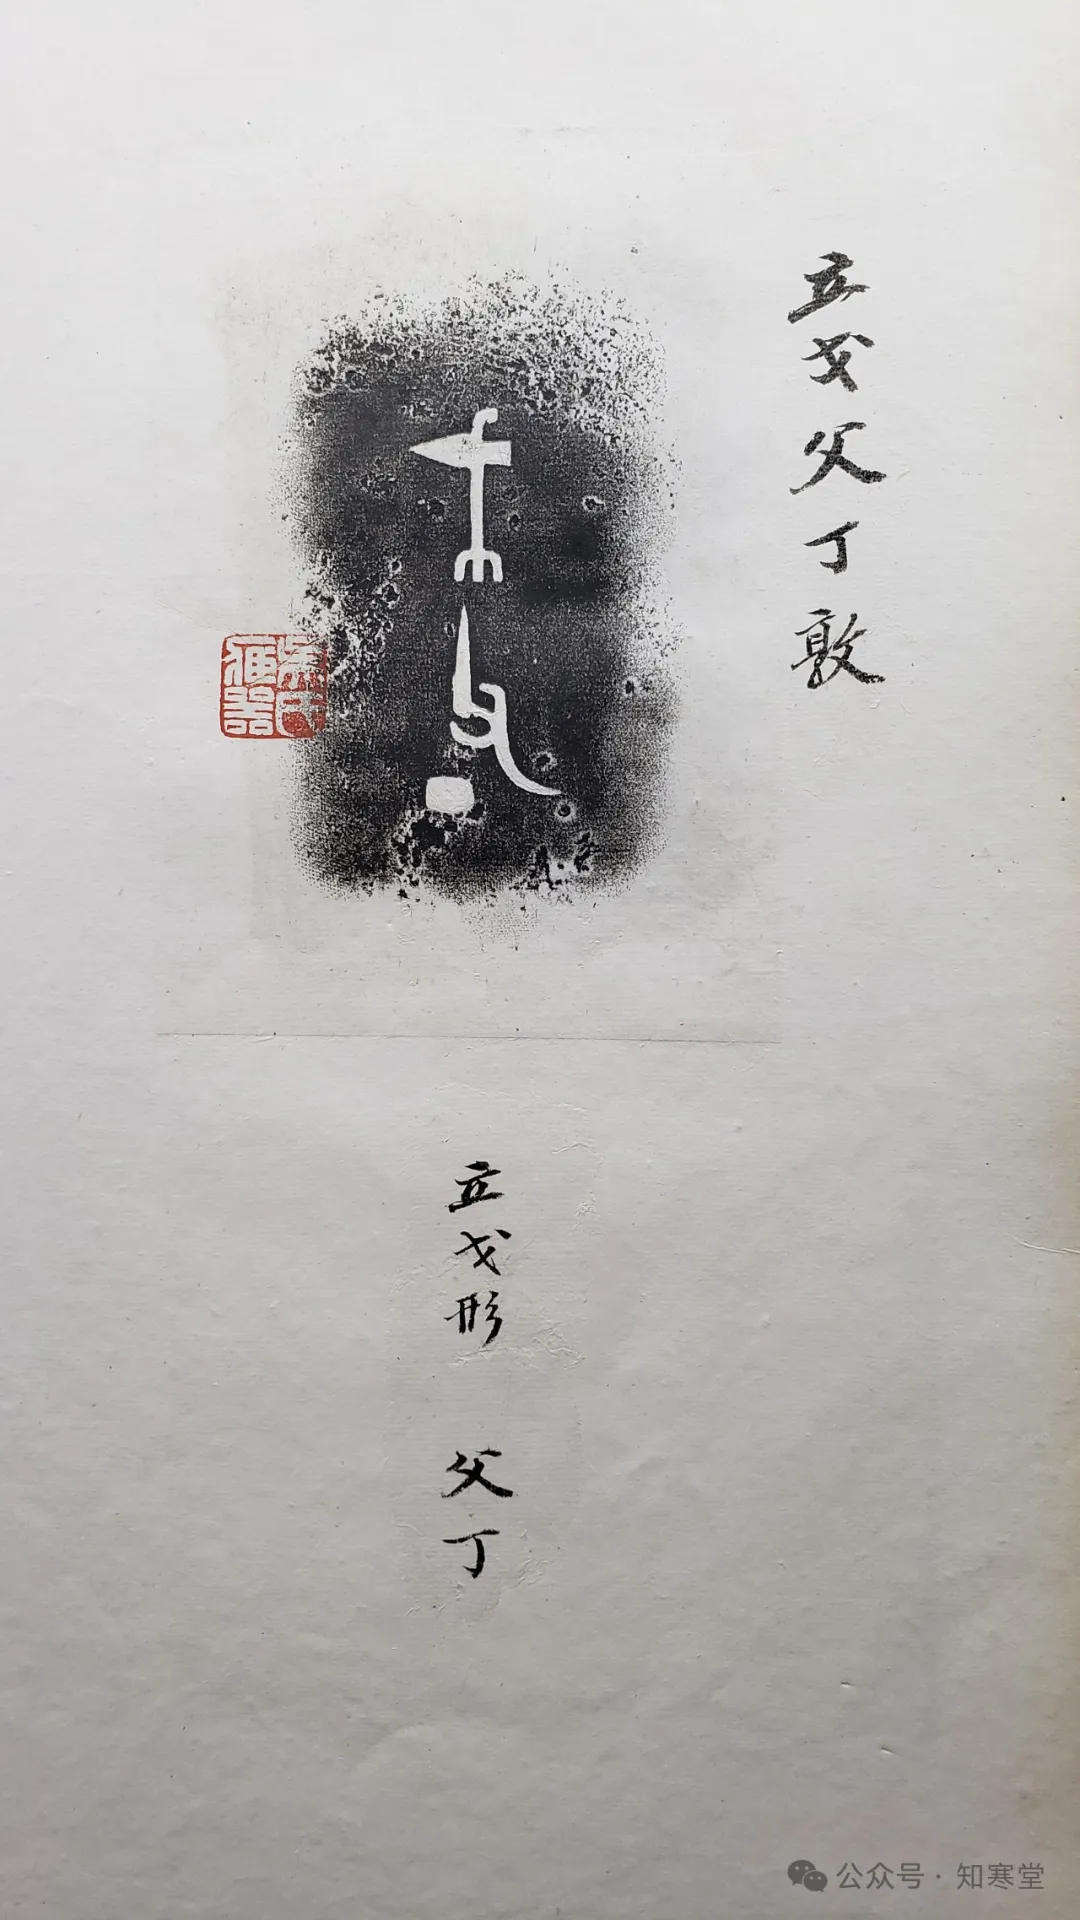 立戈父丁敦
立戈形 父丁
公众号·知寒堂